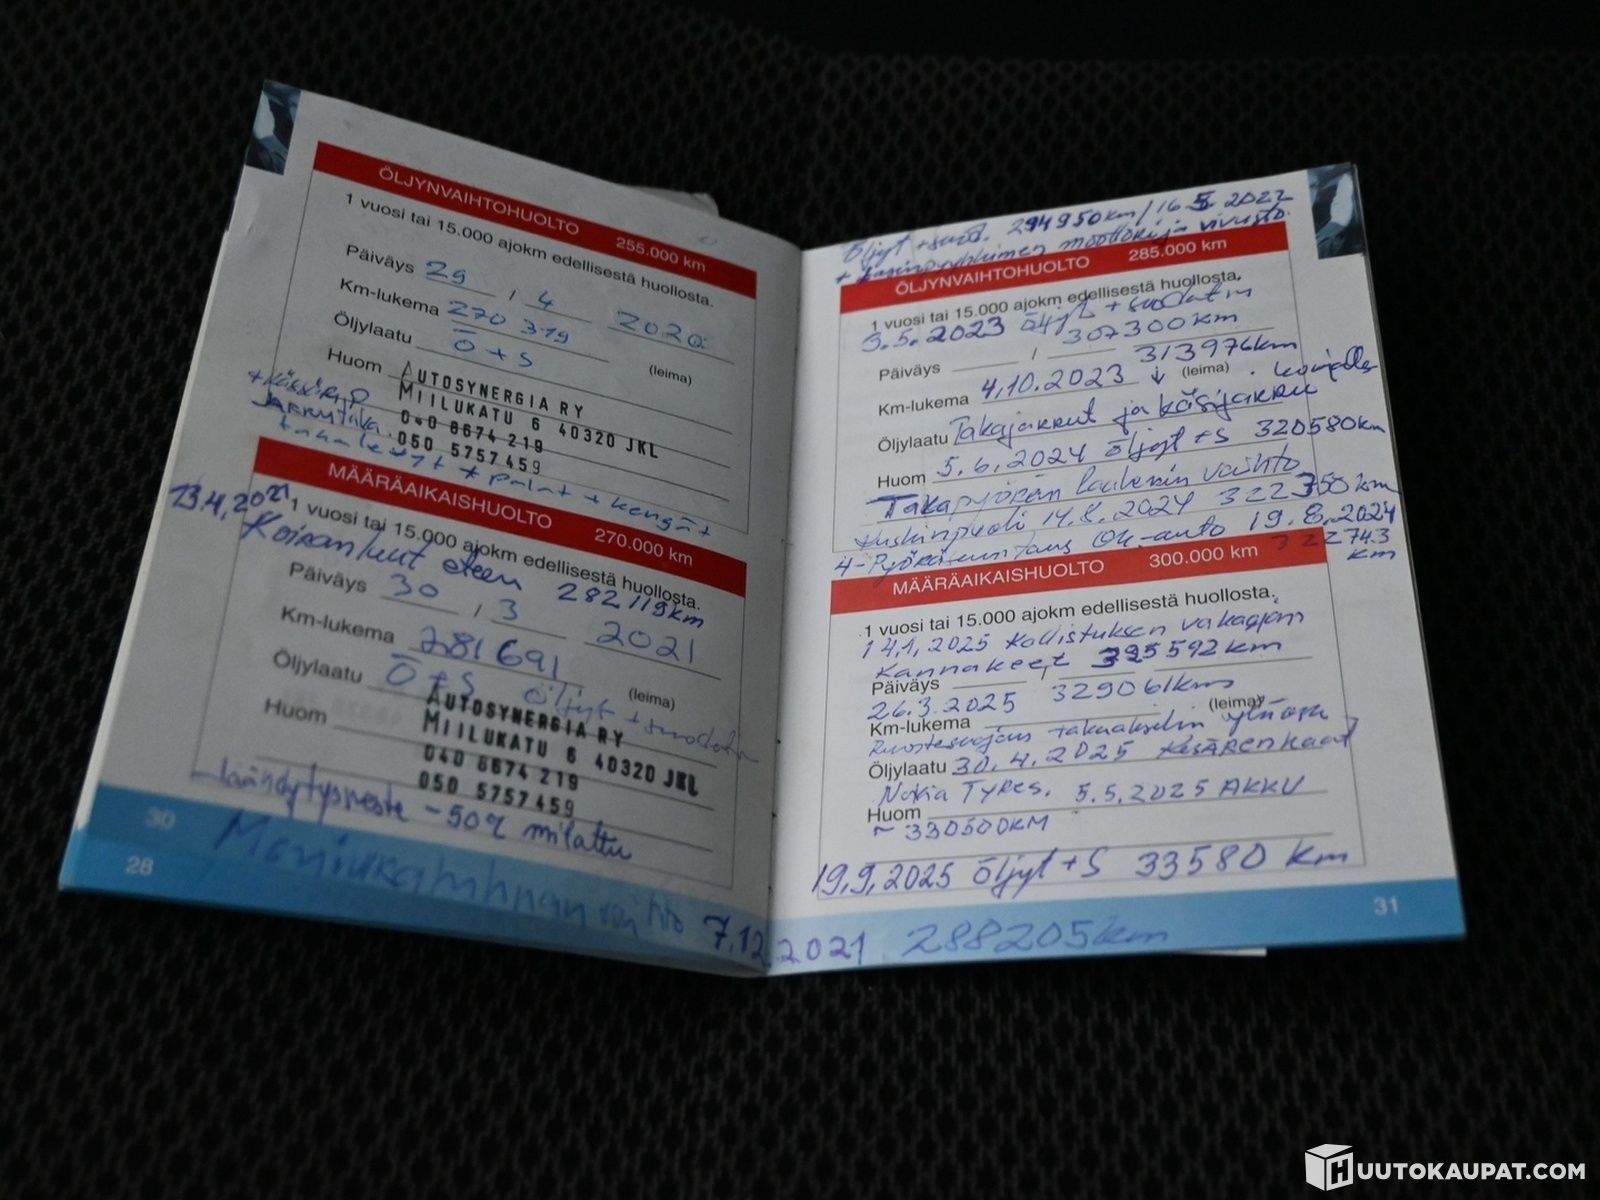 ÖLJYNVAIHTOHUOLTO 255.000 km
1 vuosi tai 15.000 ajokm edellisestä huollosta.
Päiväys 29 / 4 2020
Km-lukema 270 379
Öljylaatu Ö + S (leima)
Huom AUTOSYNERGIA RY
MIILUKATU 6 40320 JKL
040 8674 219
050 5757459
+ palat + kengät
MÄÄRÄAIKAISHUOLTO 270.000 km
13.4.2021
1 vuosi tai 15.000 ajokm edellisestä huollosta.
Koiranluut eteen 282119km
Päiväys 30 / 3 2021
Km-lukema 281691
Öljylaatu Ö + S Öljyt + suodatin (leima)
Huom AUTOSYNERGIA RY
MIILUKATU 6 40320 JKL
040 8674 219
050 5757459
Jäähdytysneste -50° mitattu
30
28
vaihto 7.12.2021 288205km
Öljyt + suod. 294950km / 16 5 2022
+ moottori ja vivusto
ÖLJYNVAIHTOHUOLTO 285.000 km
1 vuosi tai 15.000 ajokm edellisestä huollosta.
3.5.2023 Öljyt + suodatin
307300km
Päiväys / 313976km
Km-lukema 4.10.2023 ↓ (leima)
Öljylaatu Takajarrut ja käsijarru
Huom 5.6.2024 Öljyt + S 320580km
Takapyörän laakerin vaihto
Kuskinpuoli 14.8.2024 322350km
4-Pyöräsuuntaus OK-auto 19.8.2024
322743 km
MÄÄRÄAIKAISHUOLTO 300.000 km
1 vuosi tai 15.000 ajokm edellisestä huollosta.
14.1.2025 Kallistuksen vakaajan
Kannakeet 325592km
Päiväys /
26.3.2025 329061km
Km-lukema (leima)
Ruostesuojaus taka-akselin yläosa
Öljylaatu 30.4.2025 KESÄRENKAAT
Nokia Tyres. 5.5.2025 AKKU
Huom
~ 330500KM
19.9.2025 Öljyt + S 33580 Km
31
HUUTOKAUPAT.COM